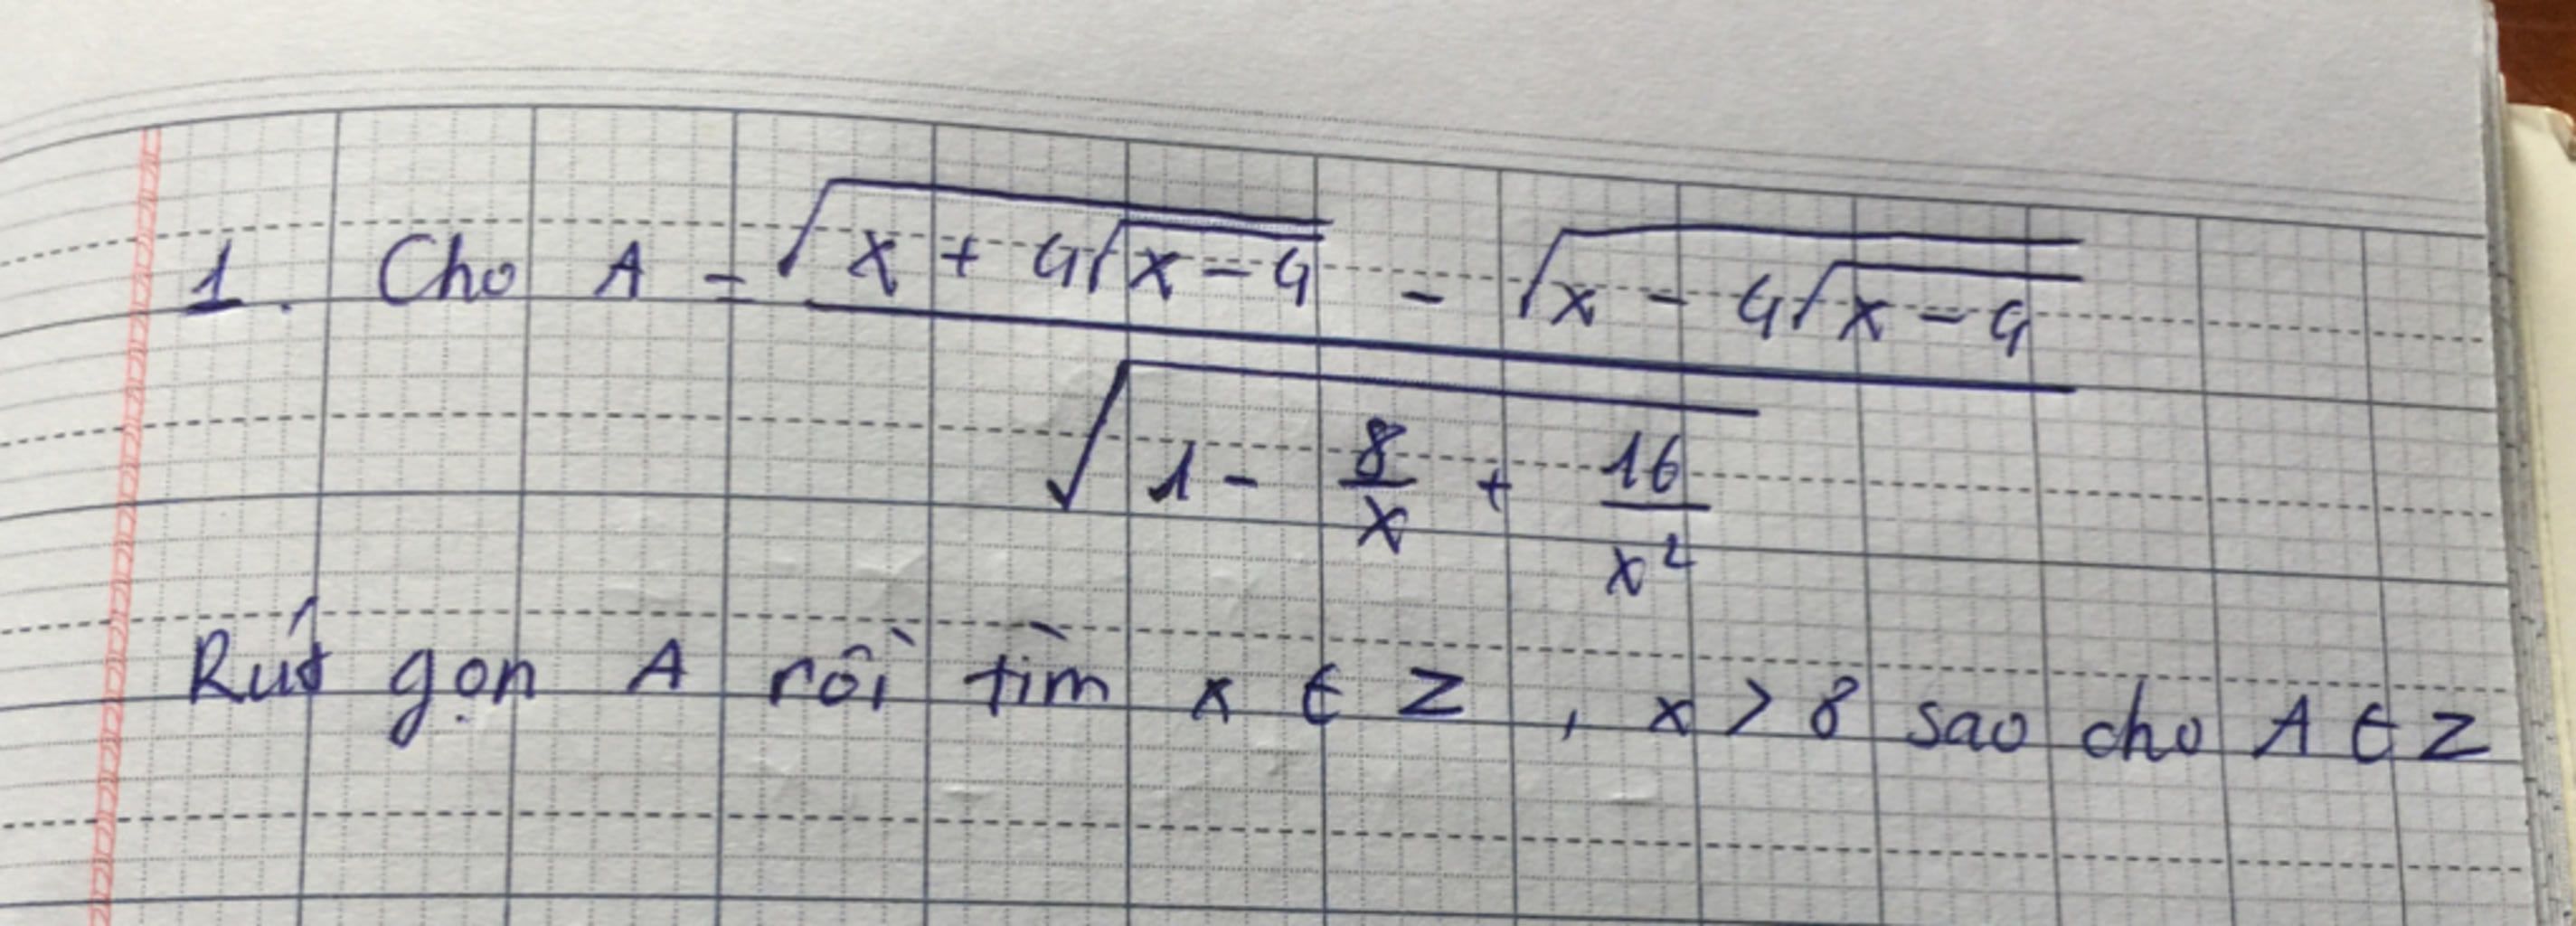 1. Cho A = \frac{\sqrt{x + 4\sqrt{x - 4}} - \sqrt{x - 4\sqrt{x - 4}}}{\sqrt{1 - \frac{8}{x} + \frac{16}{x^2}}}
Rút gọn A rồi tìm x ∈ Z, x > 8 sao cho A ∈ Z